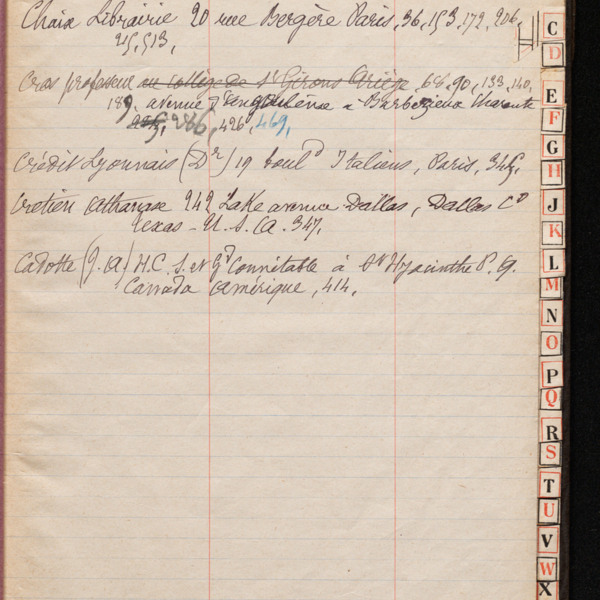 Chaix Librairie 20 rue Bergère Paris, 36, 153, 172, 206,
513,
Cros professeur au collège de St Girons Ariège, 68, 90, 133, 140,
189, avenue d'Angoulême à Barbezieux Charente
286, 426, 469,
Crédit Lyonnais (Dr) 19 bould Italiens, Paris, 345,
Cretien Athanase 242 Lake avenue Dallas, Dallas Co
Texas - U. S. A. 347.
Cadotte (J. A) H.C. S. et Gd Connétable à St Hyacinthe P. Q.
Canada Amérique, 414,
C
D
E
F
G
H
J
K
L
M
N
O
P
Q
R
S
T
U
V
W
X